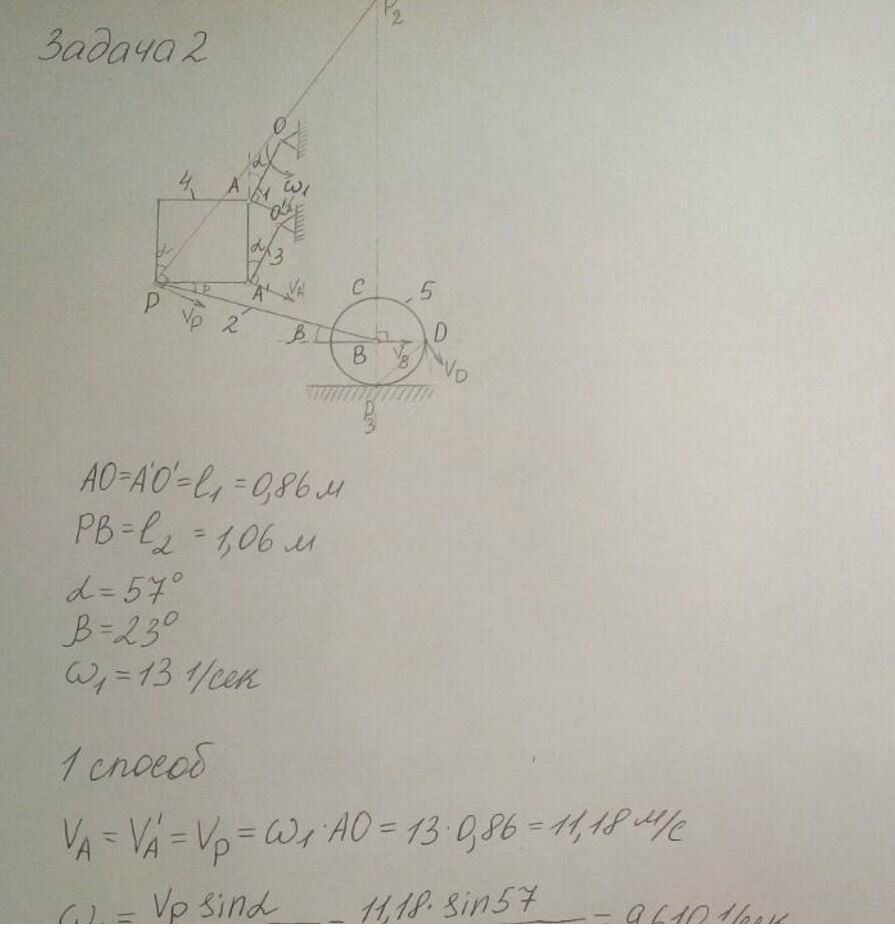 Задача 2
P2
O
α
A
1
ω1
4
O'
α
3
α
P
β
A'
VA'
VP
2
C
5
β
B
VB
D
VD
P3
AO=A'O'=l1=0,86м
PB=l2=1,06м
α=57°
β=23°
ω1=13 1/сек
1 способ
VA=VA'=VP=ω1·AO=13·0,86=11,18м/с
VP sinα
11,18·sin57